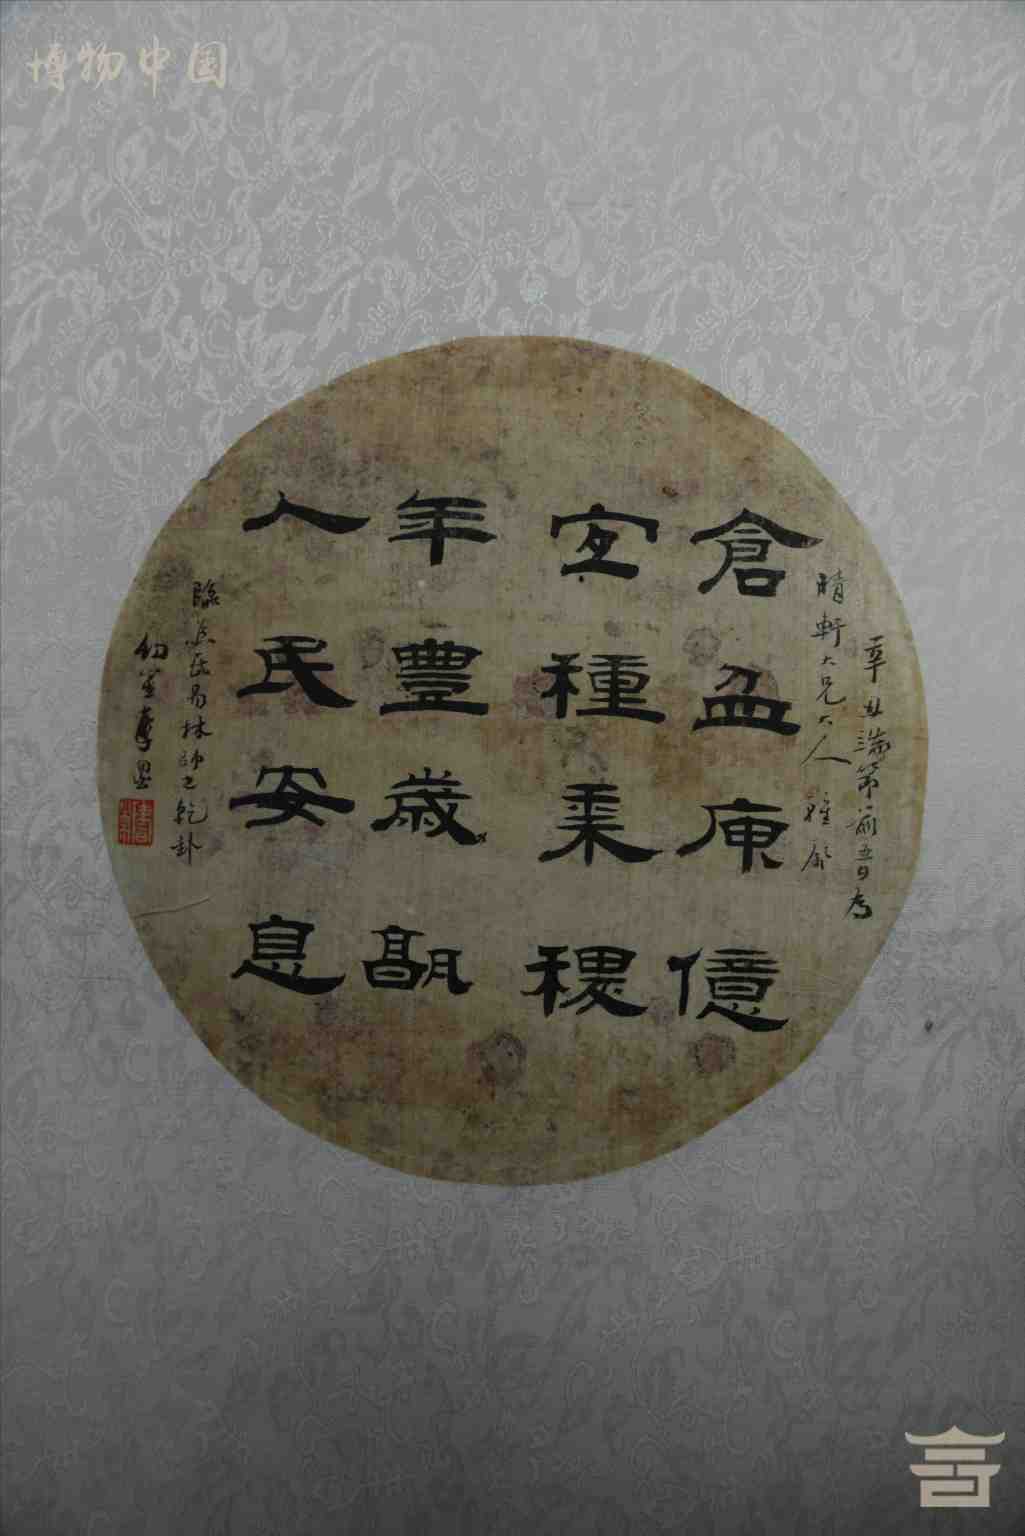 博物中国
辛丑端節前五日為
晴軒大兄大人 雅屬
倉盈庾億
宜種黍稷
年豐歲熟
人民安息
臨焦氏易林師之乾卦
幼笙李